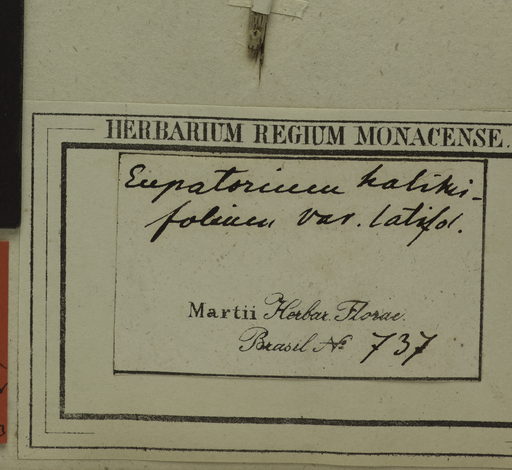 HERBARIUM REGIUM MONACENSE.
Eupatorium halimi-
folium var. latifol.
Martii Herbar. Florae
Brasil No 737